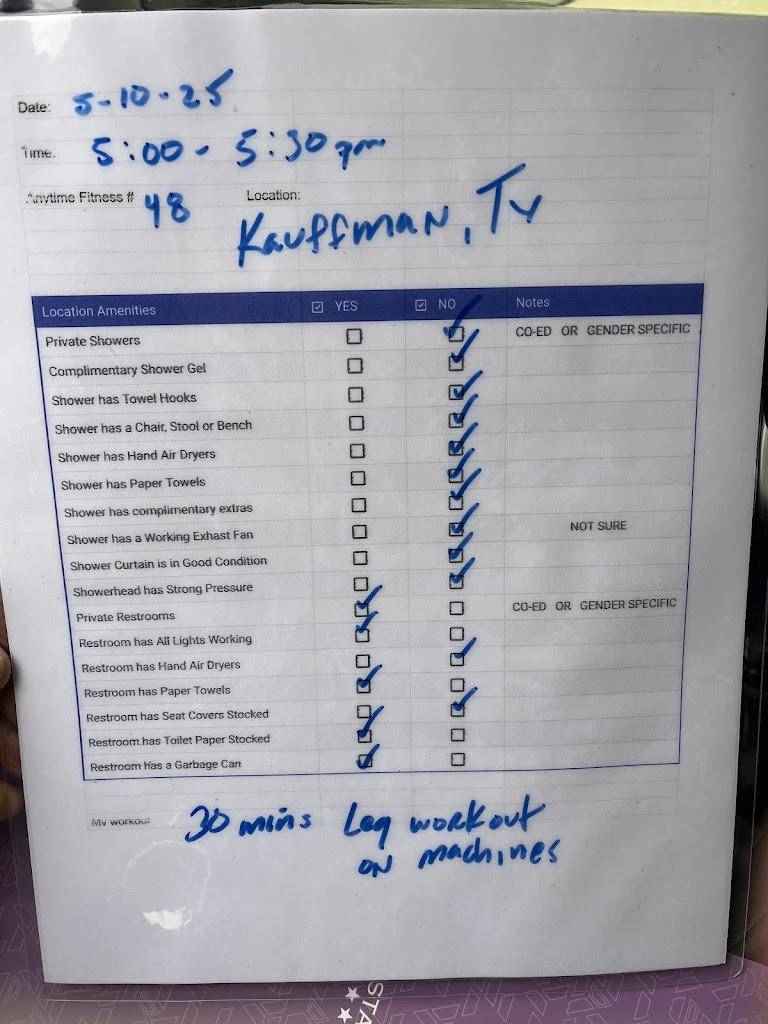 Date: 5-10-25
Time. 5:00 - 5:30 pm
Anytime Fitness # 48 Location:
Kauffman, Tx
Location Amenities ☑ YES ☑ NO Notes
Private Showers ☐ ☑ CO-ED OR GENDER SPECIFIC
Complimentary Shower Gel ☐ ☑
Shower has Towel Hooks ☐ ☑
Shower has a Chair, Stool or Bench ☐ ☑
Shower has Hand Air Dryers ☐ ☑
Shower has Paper Towels ☐ ☑
Shower has complimentary extras ☐ ☑
Shower has a Working Exhast Fan ☐ ☑ NOT SURE
Shower Curtain is in Good Condition ☐ ☑
Showerhead has Strong Pressure ☐ ☑
Private Restrooms ☑ ☐ CO-ED OR GENDER SPECIFIC
Restroom has All Lights Working ☑ ☐
Restroom has Hand Air Dryers ☐ ☑
Restroom has Paper Towels ☑ ☐
Restroom has Seat Covers Stocked ☐ ☑
Restroom has Toilet Paper Stocked ☑ ☐
Restroom has a Garbage Can ☑ ☐
My workout: 30 mins Leg workout
on machines
STA